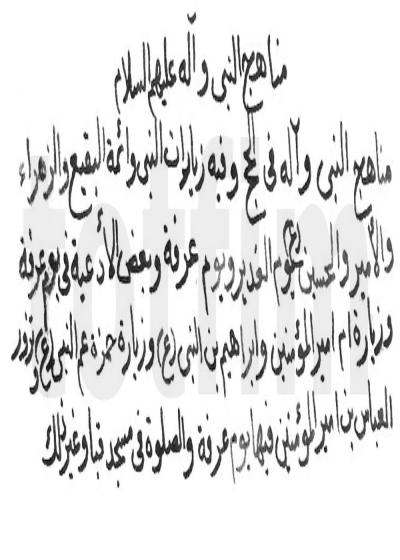 مناهج النبى وآله عليهم السلام
مناهج النبى وآله فى حج وفيه زيارات النبى وائمة البقيع والزهراء
والأمير والحسين (ع) يوم الغدير ويوم عرفة وبعض الأدعية فى يوم عرفة
وزيارة ام امير المؤمنين وابراهيم بن النبى (ع) وزيارة حمزة عم النبى (ع)
العباس بن امير المؤمنين فيها يوم عرفة والصلوة فى مسجد قبا وغير ذلك